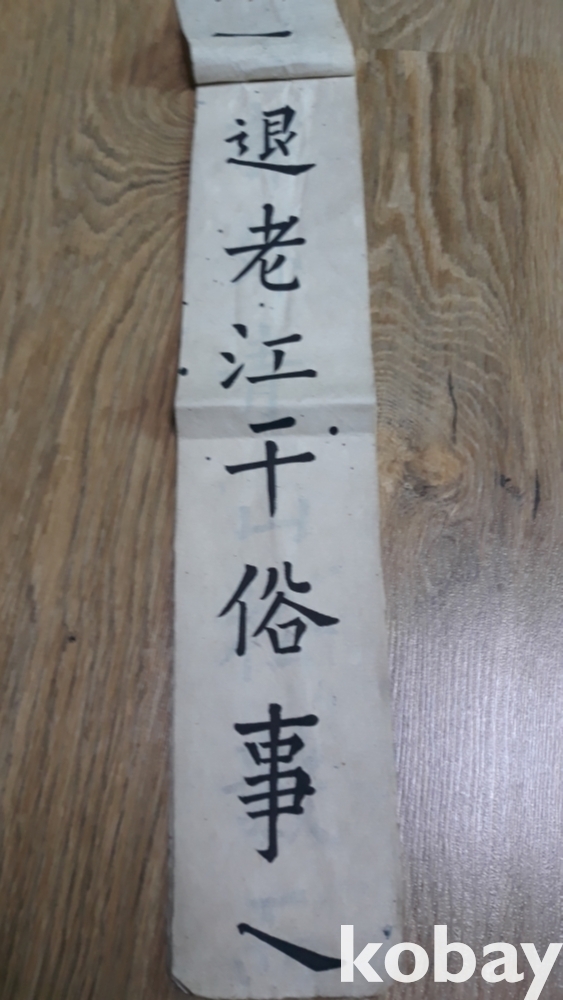 退老江干俗事
kobay